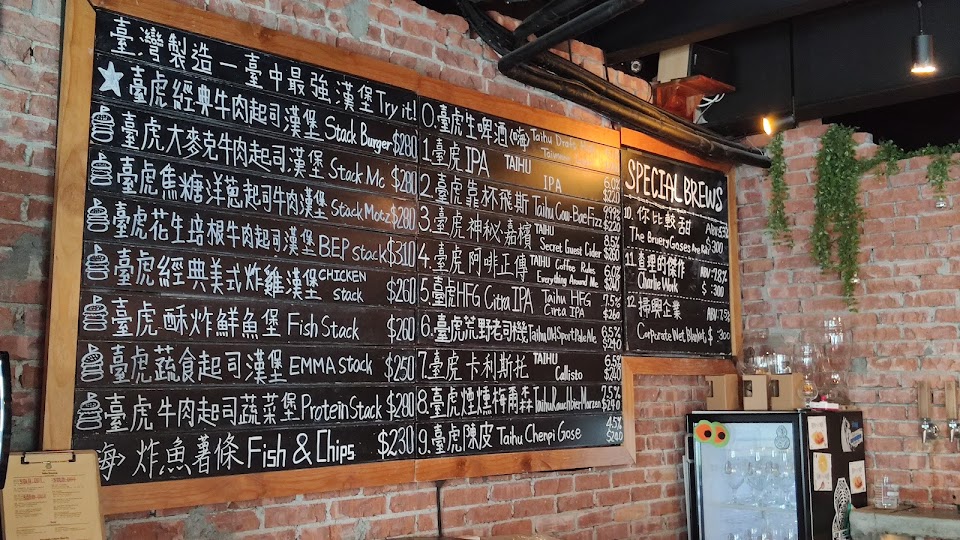 臺灣製造一臺中最強漢堡Try it!
臺虎經典牛肉起司漢堡 Stack Burger $280
臺虎大麥克牛肉起司漢堡 Stack Mc $280
臺虎焦糖洋蔥起司牛肉漢堡 Stack Motz $280
臺虎花生培根牛肉起司漢堡 BEP stack $310
臺虎經典美式炸雞漢堡 CHICKEN stack $260
臺虎酥炸鮮魚堡 Fish Stack $260
臺虎蔬食起司漢堡 EMMA stack $250
臺虎牛肉起司蔬菜堡 Protein Stack $280
炸魚薯條 Fish & Chips $230
0.臺虎生啤酒(嗨) Taihu Draft
1.臺虎IPA TAIHU IPA 6.0% $220
2.臺虎靠杯飛斯 Taihu Cow-Bae Fizz 9.99% $220
3.臺虎神秘嘉檳 TAIHU Secret Guest Cider 8.5%
4.臺虎阿啡正傳 TAIHU Coffee Rules Everything Around Me 6.0% $240
5.臺虎HFG Citra IPA Taihu HFG Cirta IPA 7.5% $260
6.臺虎荒野老司機 Taihu Old Sport Pale Ale 6.5% $240
7.臺虎卡利斯托 TAIHU Callisto 6.5% $240
8.臺虎煙燻梅爾森 Taihu Rauchbier Marzen 7.5% $240
9.臺虎陳皮 Taihu Chenpi Gose 4.5% $200
SPECIAL BREWS
10. 你比較甜
The Bruery Goses Are Red $300
11. 真理的傑作 ABV:7.8%
Charlie Work $:300
12. 掃興企業 ABV:7.5%
Corporate Wet Blanket $:300